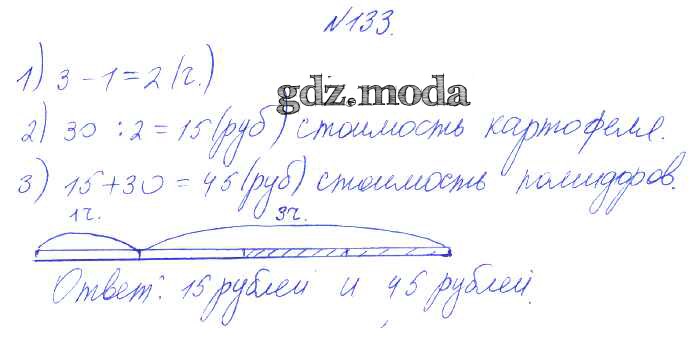 №133.
1) 3 - 1 = 2 (ч.)
gdz.moda
2) 30 : 2 = 15 (руб) стоимость картофеля.
3) 15 + 30 = 45 (руб) стоимость помидоров.
1ч. 3ч.
Ответ: 15 рублей и 45 рублей.